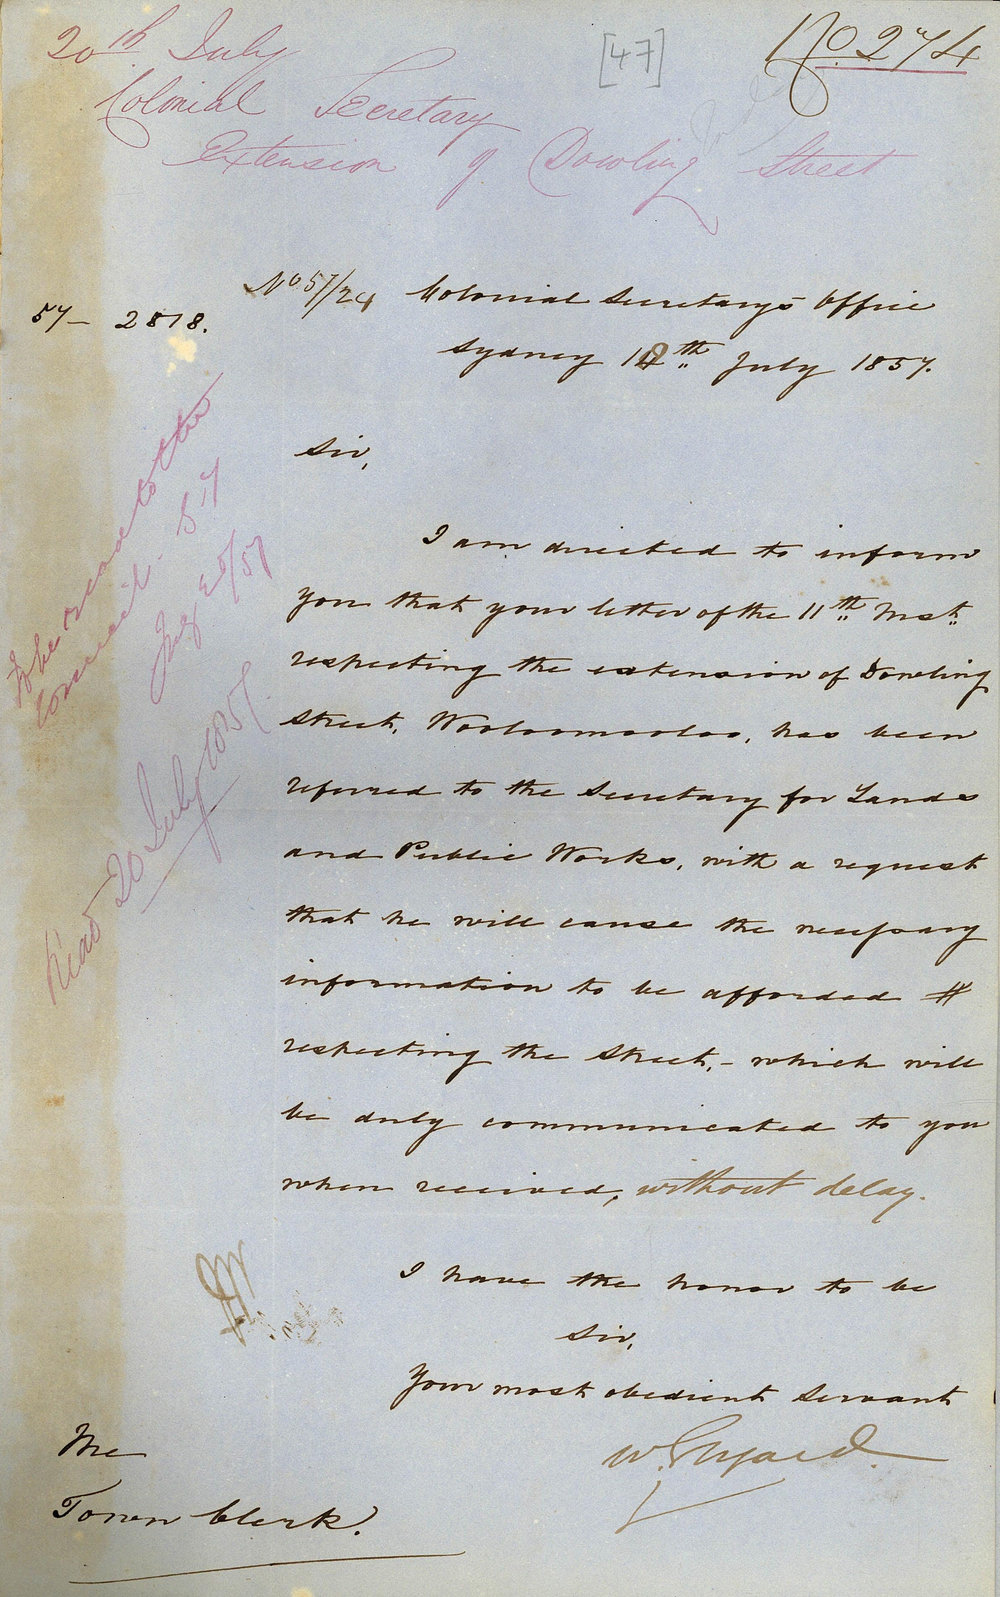 20th July
[47]
No. 274
Colonial Secretary
Extension of Dowling Street
No 57/24 Colonial Secretary's Office
57 - 2818.
Sydney 18th July 1857.
Sir,
I am directed to inform
you that your letter of the 11th Inst.
respecting the extension of Dowling
Street, Wooloomooloo, has been
referred to the Secretary for Lands
and Public Works, with a request
that he will cause the necessary
information to be afforded
respecting the Street, - which will
be duly communicated to you
when received, without delay.
I have the honor to be
Sir,
Your most obedient Servant
W. Elyard.
The
Town Clerk.
To be read to the
Council.
July 20/57
Read 20 July 1857.